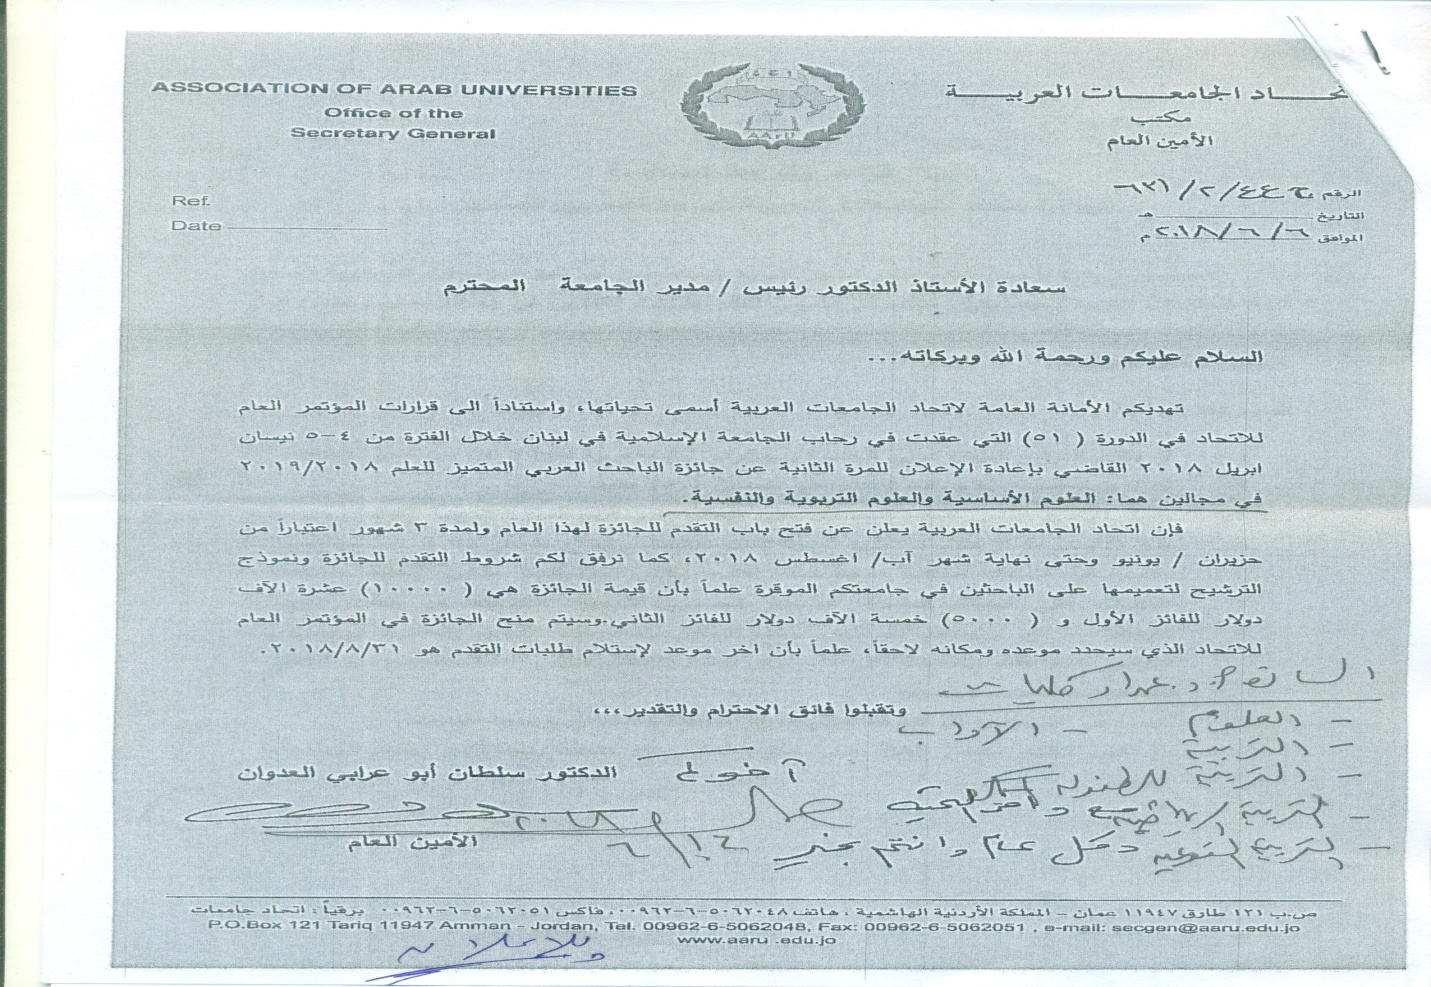 ASSOCIATION OF ARAB UNIVERSITIES
Office of the
Secretary General
ـحـــاد الجامعـــات العربيـــة
مكتب
الأمين العام
AArU
Ref.
Date
الرقم
التاريخ هـ
الموافق ٢٠١٨/٦/٦ م
سعادة الأستاذ الدكتور رئيس / مدير الجامعة المحترم
السلام عليكم ورحمة الله وبركاته...
تهديكم الأمانة العامة لاتحاد الجامعات العربية أسمى تحياتها، واستناداً الى قرارات المؤتمر العام
للاتحاد في الدورة ( ٥١) التي عقدت في رحاب الجامعة الإسلامية في لبنان خلال الفترة من ٤-٥ نيسان
ابريل ٢٠١٨ القاضي بإعادة الإعلان للمرة الثانية عن جائزة الباحث العربي المتميز للعلم ٢٠١٩/٢٠١٨
في مجالين هما: العلوم الأساسية والعلوم التربوية والنفسية.
فإن اتحاد الجامعات العربية يعلن عن فتح باب التقدم للجائزة لهذا العام ولمدة ٣ شهور اعتباراً من
حزيران / يونيو وحتى نهاية شهر آب/ اغسطس ٢٠١٨، كما نرفق لكم شروط التقدم للجائزة ونموذج
الترشيح لتعميمها على الباحثين في جامعتكم الموقرة علماً بأن قيمة الجائزة هي ( ١٠٠٠٠) عشرة الآف
دولار للفائز الأول و ( ٥٠٠٠) خمسة الآف دولار للفائز الثاني.وسيتم منح الجائزة في المؤتمر العام
للاتحاد الذي سيحدد موعده ومكانه لاحقاً، علماً بأن اخر موعد لإستلام طلبات التقدم هو ٢٠١٨/٨/٣١.
عمداء كليات
وتقبلوا فائق الاحترام والتقدير،،،
- العلوم - الآداب
- التربية
- التربية للطفولة
الدكتور سلطان أبو عرابي العدوان
- التربية
- التربية وكل عام وانتم بخير
الأمين العام
ص.ب ١٢١ طارق ١١٩٤٧ عمان – المملكة الأردنية الهاشمية ، هاتف ٥٠٦٢٠٤٨-٦-٠٠٩٦٢، فاكس ٥٠٦٢٠٥١-٦-٠٠٩٦٢ برقياً : اتحاد جامعات
P.O.Box 121 Tariq 11947 Amman - Jordan, Tel. 00962-6-5062048, Fax: 00962-6-5062051 , e-mail: secgen@aaru.edu.jo
www.aaru .edu.jo